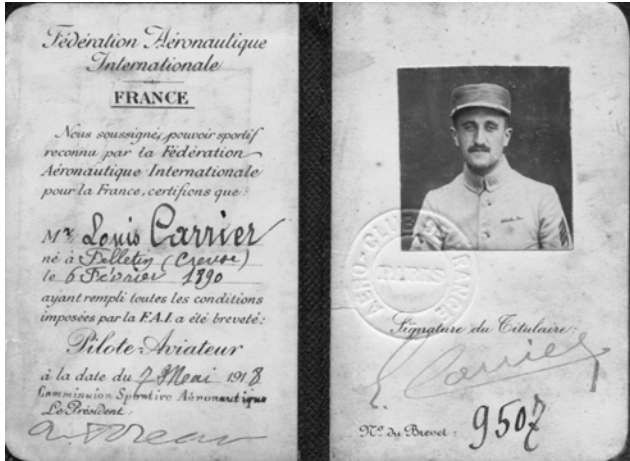 Fédération Aéronautique
Internationale
FRANCE
Nous soussignés, pouvoir sportif
reconnu par la Fédération
Aéronautique Internationale
pour la France, certifions que:
Mr Louis Carrier
né à Felletin (Creuse)
le 6 Février 1890
ayant rempli toutes les conditions
imposées par la F.A.I. a été breveté:
Pilote-Aviateur
à la date du 7 Mai 1918
Commission Sportive Aéronautique
Le Président:
AÉRO-CLUB DE FRANCE
PARIS
Signature du Titulaire:
L Carrier
No. du Brevet: 9507